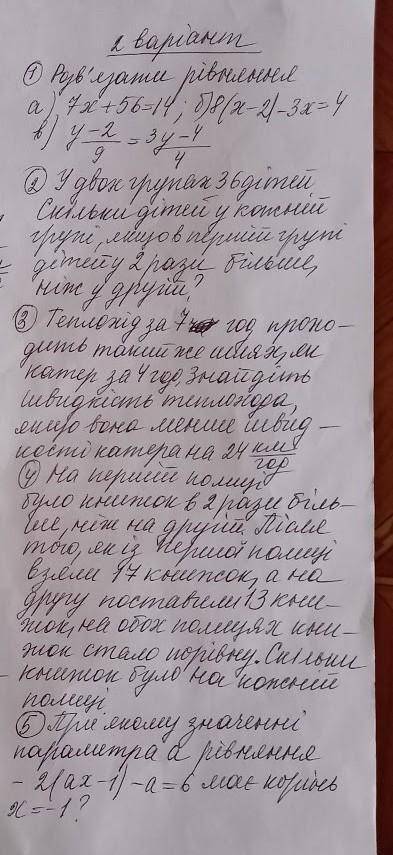 2 варіант
① Розв'язати рівняння
а) 7x+56=14; б) 8(x-2)-3x=4
в) y-2/9 = 3y-4/4
② У двох групах 36 дітей
Скільки дітей у кожній
групі, якщо в першій групі
дітей у 2 рази більше,
ніж у другій?
③ Теплохід за 7 год прохо-
дить такий же шлях, як
катер за 4 год. Знайдіть
швидкість теплохода,
якщо вона менше швид-
кості катера на 24 км/год
④ На першій полиці
було книжок в 2 рази біль-
ше, ніж на другій. Після
того, як із першої полиці
взяли 17 книжок, а на
другу поставили 13 кни-
жок, на обох полицях кни-
жок стало порівну. Скільки
книжок було на кожній
полиці
⑤ При якому значенні
параметра а рівняння
-2(ax-1)-a=6 має корінь
x=-1?